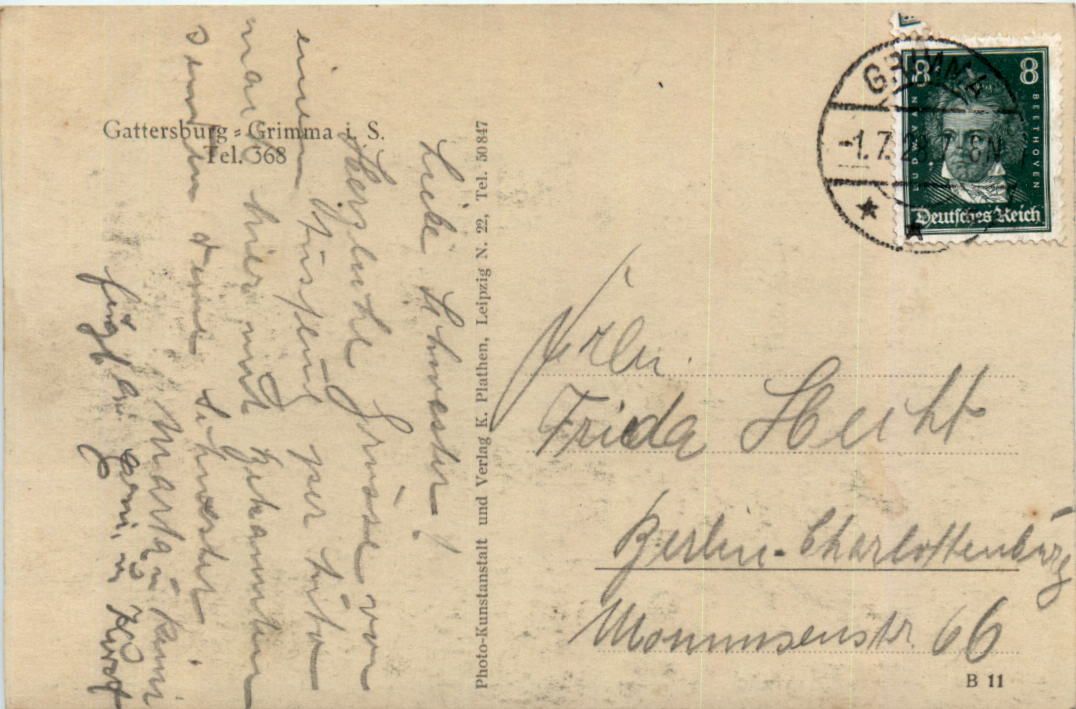 Gattersburg = Grimma i. S.
Tel. 368
Liebe Schwester!
Herzliche Grüsse von
einem Ausflug per Auto
nach hier mit
senden deine Schwester
Marta u.
Photo-Kunstanstalt und Verlag K. Plathen, Leipzig N. 22, Tel. 50847
GRIMMA
-1.7.
8 8
LUDWIG VAN BEETHOVEN
Deutsches Reich
Frln.
Frieda Hecht
Berlin-Charlottenburg
Mommsenstr. 66
B 11